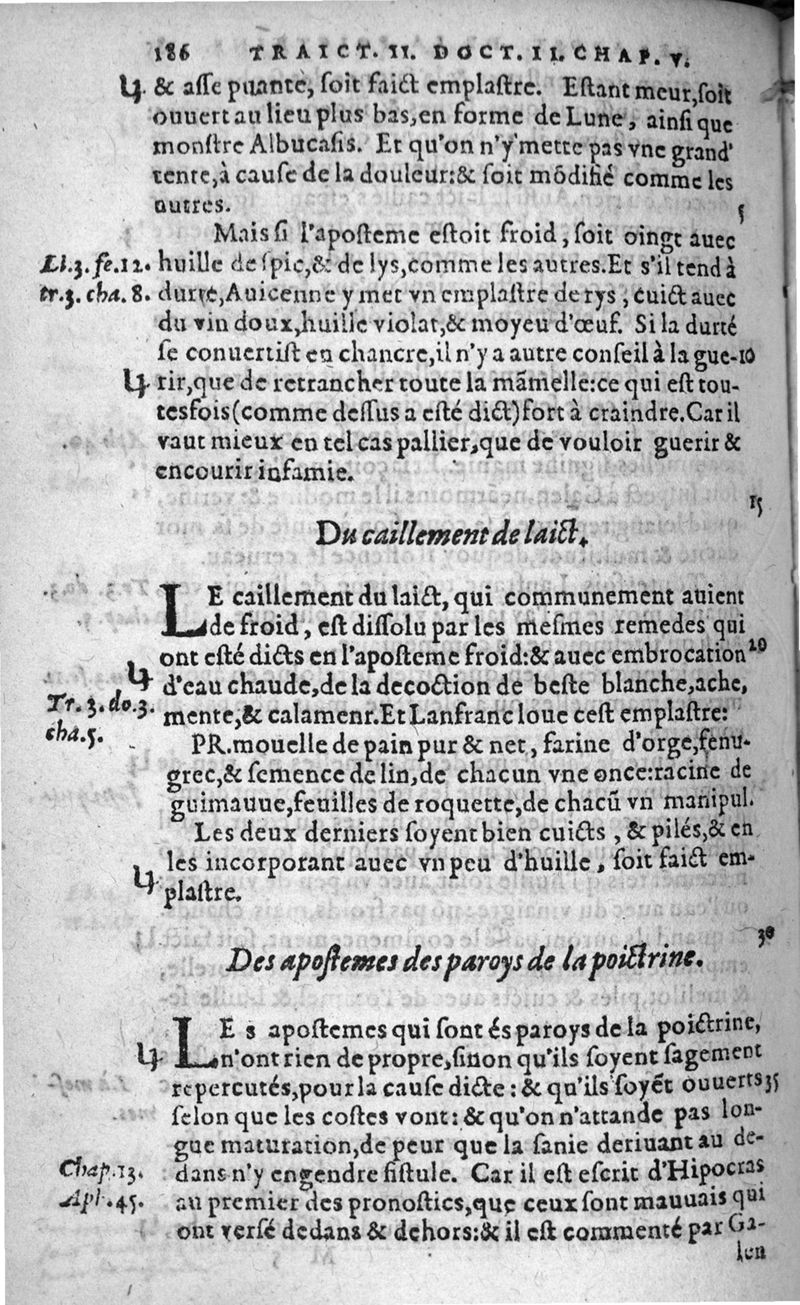 186 TRAICT. II. DOCT. II. CHAP. V.
& asse puante, soit faict emplastre. Estant meur, soit
ouuert au lieu plus bas, en forme de Lune, ainsi que
monstre Albucasis. Et qu'on n'y mette pas vne grand'
tente, à cause de la douleur: & soit mõdifié comme les
autres. 5
Mais si l'aposteme estoit froid, soit oingt auec
Li.3. fe.12. huille de spic, & de lys, comme les autres. Et s'il tend à
tr.3. cha. 8. durté, Auicenne y met vn emplastre de rys, cuict auec
du vin doux, huille violat, & moyeu d'œuf. Si la durté
se conuertist en chancre, il n'y a autre conseil à la gue- 10
rir, que de retrancher toute la mãmelle: ce qui est tou-
tesfois (comme dessus a esté dict) fort à craindre. Car il
vaut mieux en tel cas pallier, que de vouloir guerir &
encourir infamie.
15
Du caillement de laict.
LE caillement du laict, qui communement auient
de froid, est dissolu par les mesmes remedes qui
ont esté dicts en l'aposteme froid: & auec embrocation 20
d'eau chaude, de la decoction de beste blanche, ache,
Tr. 3. do.3. mente, & calament. Et Lanfranc loue cest emplastre:
cha.5. PR. mouelle de pain pur & net, farine d'orge, fenu-
grec, & semence de lin, de chacun vne once: racine de
guimauue, feuilles de roquette, de chacũ vn manipul.
Les deux derniers soyent bien cuicts, & pilés, & en
les incorporant auec vn peu d'huille, soit faict em-
plastre.
30
Des apostemes des paroys de la poictrine.
LEs apostemes qui sont és paroys de la poictrine,
n'ont rien de propre, sinon qu'ils soyent sagement
repercutés, pour la cause dicte: & qu'ils soyẽt ouuerts 35
selon que les costes vont: & qu'on n'attande pas lon-
gue maturation, de peur que la sanie deriuant au de-
Chap.13. dans n'y engendre fistule. Car il est escrit d'Hipocras
Aph.45. au premier des pronostics, que ceux sont mauuais qui
ont versé dedans & dehors: & il est commenté par Ga-
len